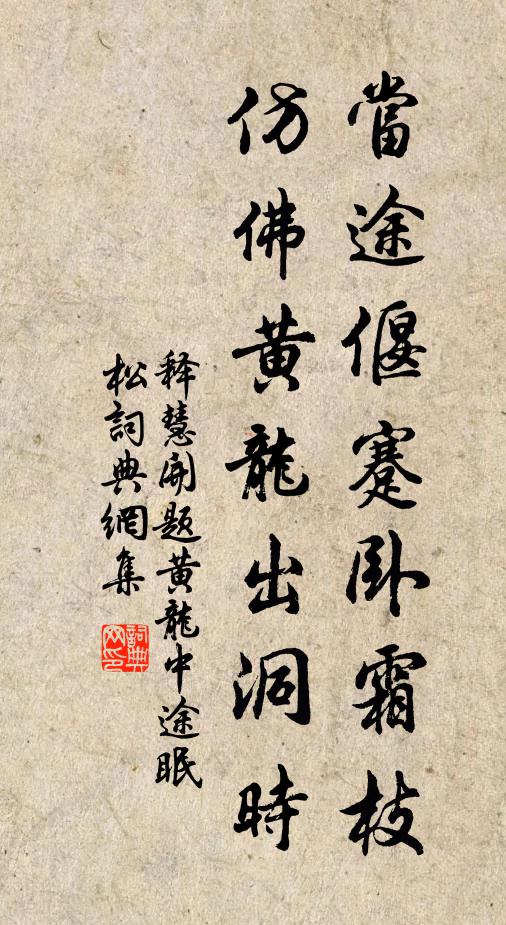 當途偃蹇卧霜枝
仿佛黄龍出洞時
释慧開题黄龍中途眠
松詞典網集
詞典
网印